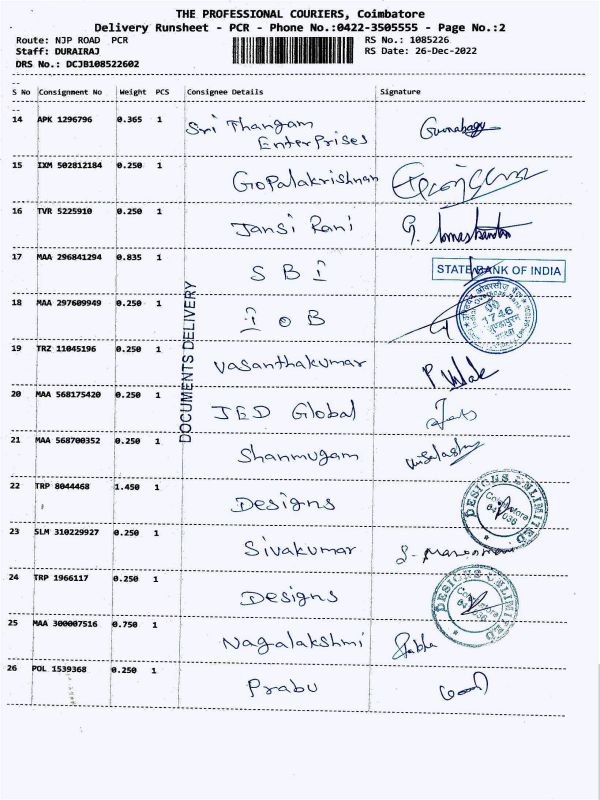 THE PROFESSIONAL COURIERS, Coimbatore
Delivery Runsheet - PCR - Phone No.:0422-3505555 - Page No.:2
Route: NJP ROAD PCR
RS No.: 1085226
Staff: DURAIRAJ
RS Date: 26-Dec-2022
DRS No.: DCJB108522602
S No Consignment No Weight PCS Consignee Details Signature
14 APK 1296796 0.365 1 Sri Thangam
Enterprises
15 IXM 502812184 0.250 1 Gopalakrishnan
16 TVR 5225910 0.250 1 Jansi Rani
17 MAA 296841294 0.835 1 SBI STATE BANK OF INDIA
18 MAA 297609949 0.250 1 IOB 1746
DOCUMENTS DELIVERY
19 TRZ 11045196 0.250 1 Vasanthakumar
20 MAA 568175420 0.250 1 JED Global
21 MAA 568700352 0.250 1 Shanmugam
22 TRP 8044468 1.450 1 Designs DESIGNS UNLIMITED Coimbatore
23 SLM 310229927 0.250 1 Sivakumar
24 TRP 1966117 0.250 1 Designs DESIGNS UNLIMITED
25 MAA 300007516 0.750 1 Nagalakshmi
26 POL 1539368 0.250 1 Prabu